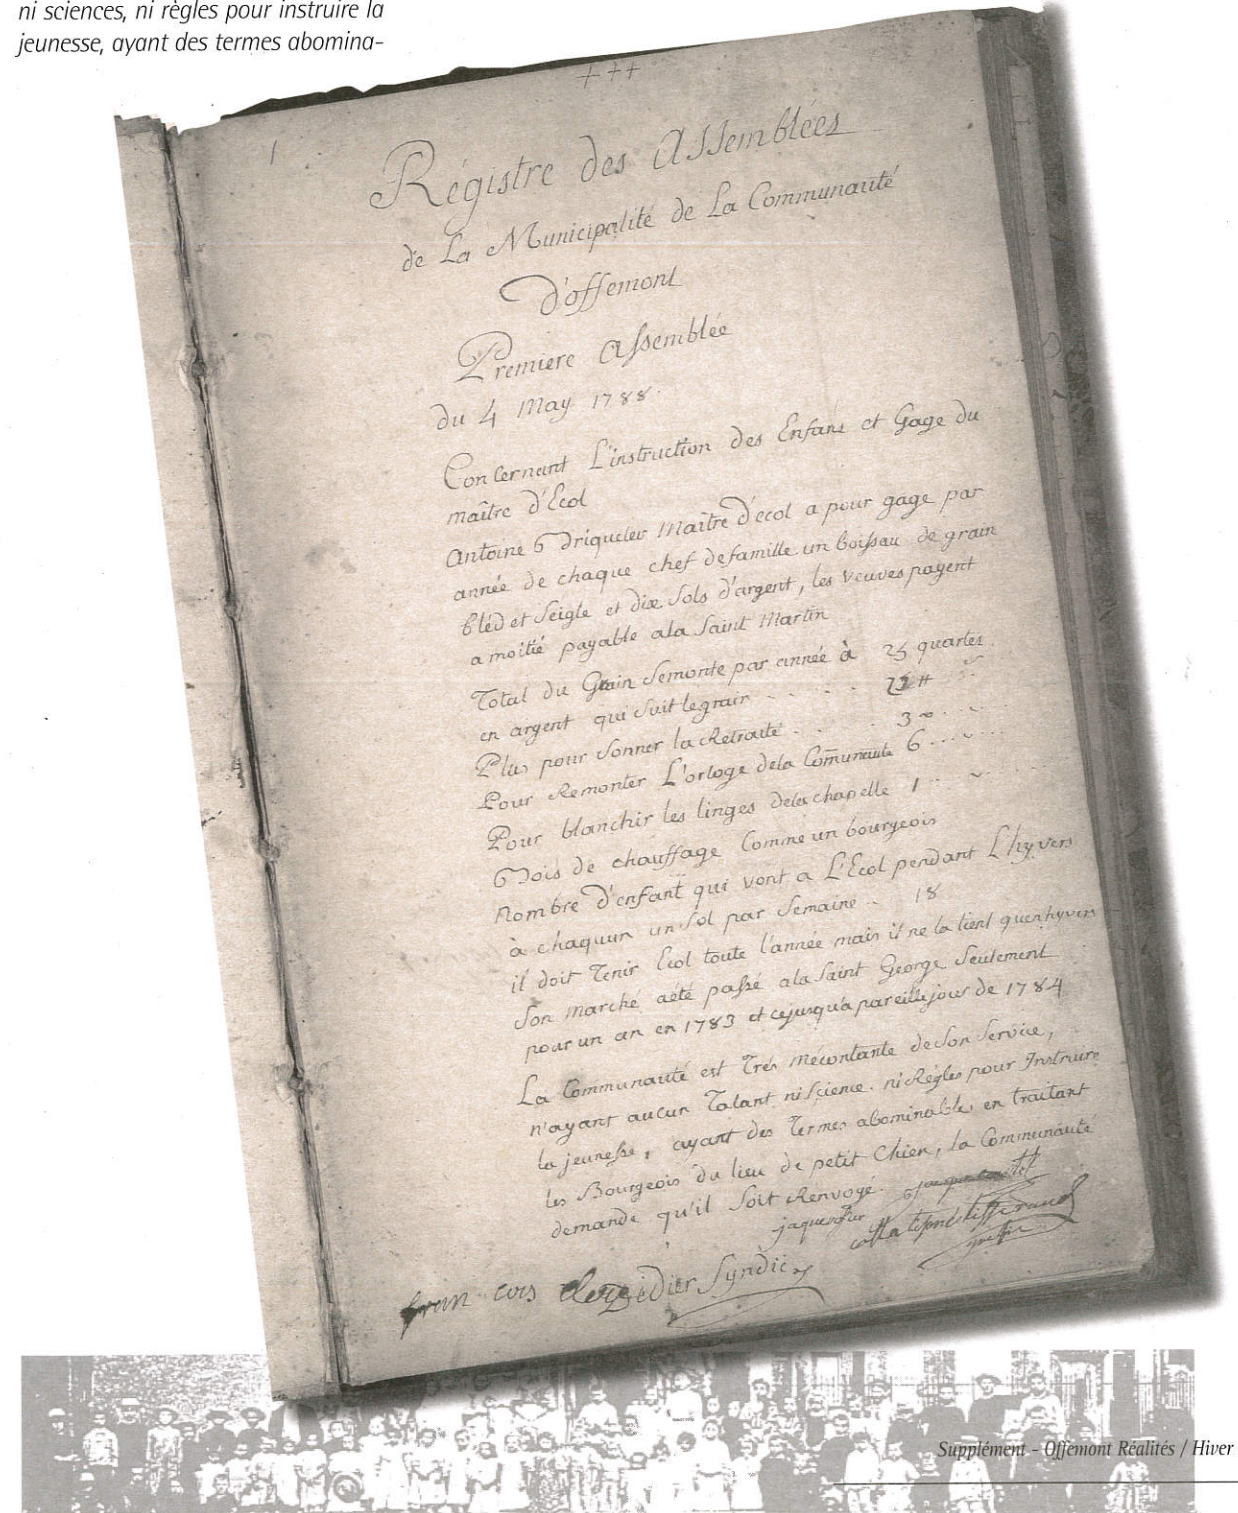 ni sciences, ni règles pour instruire la
jeunesse, ayant des termes abomina-
+++
1
Régistre des Assemblées
de La Municipalité de La Communauté
d'offemont
Premiere Assemblée
du 4 May 1788
Concernant L'instruction des Enfans et Gage du
maître d'Ecol
Antoine maître d'écol a pour gage par
année de chaque chef de famille un boisseau de grain
bléd et Seigle et dix Sols d'argent, les veuves payent
a moitié payable a la Saint Martin
Total du Grain Semonte par année à 25 quartes
en argent qui Suit le grain
Plus pour Sonner la Retraite 3
Pour Remonter L'orloge de la Communauté 6
Pour blanchir les linges de la chapelle 1
Bois de chauffage Comme un bourgeois
Nombre d'enfant qui vont a L'Ecol pendant L'hyvers
à chaquun un Sol par Semaine 18
il doit Tenir Ecol toute l'année mais il ne la tient quenhyvers
Son marché aété passé a la Saint George Seulement
pour un an en 1783 et cejusqu'a pareille jour de 1784
La Communauté est Trés mécontante de Son Service,
n'ayant aucun Talant ni Science. ni Régles pour Instruire
la jeunesse, ayant des Termes abominable, en traitant
les Bourgeois du lieu de petit Chien, La Communauté
demande qu'il Soit Renvoyé.
fran cois Didier Syndic
Supplément - Offemont Réalités / Hiver